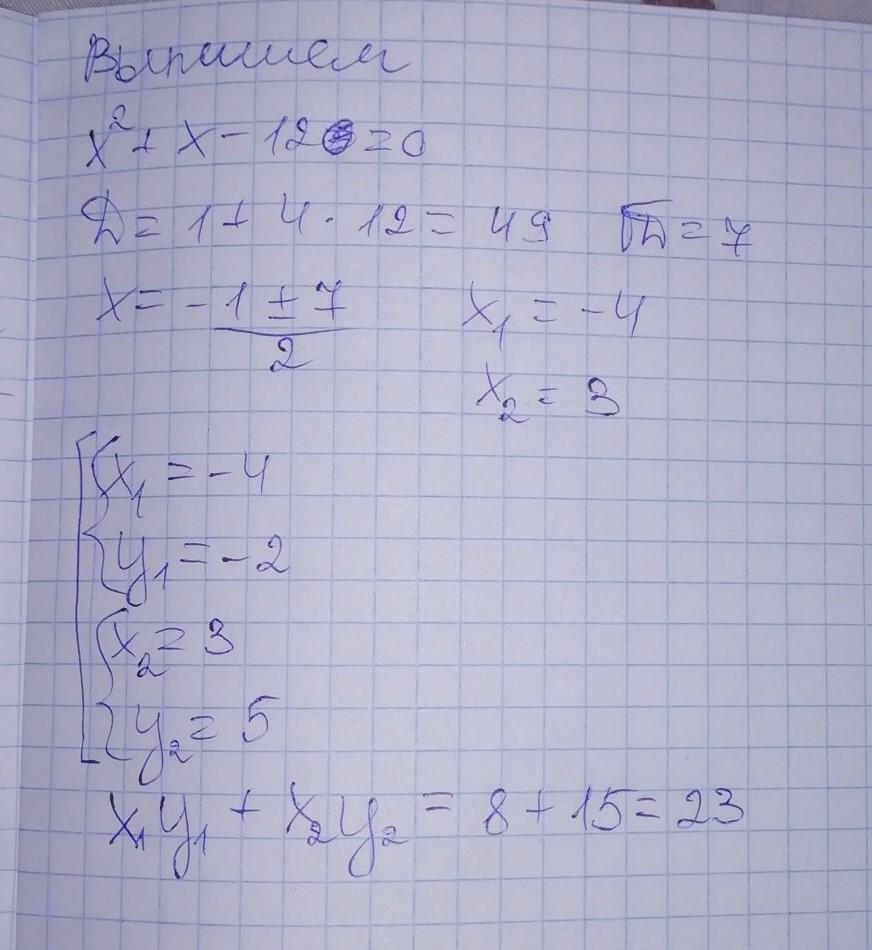 Выпишем
x² + x - 12 = 0
Д = 1 + 4 · 12 = 49 √Д = 7
x = -1 ± 7 / 2 x₁ = -4
x₂ = 3
x₁ = -4
y₁ = -2
x₂ = 3
y₂ = 5
x₁y₁ + x₂y₂ = 8 + 15 = 23